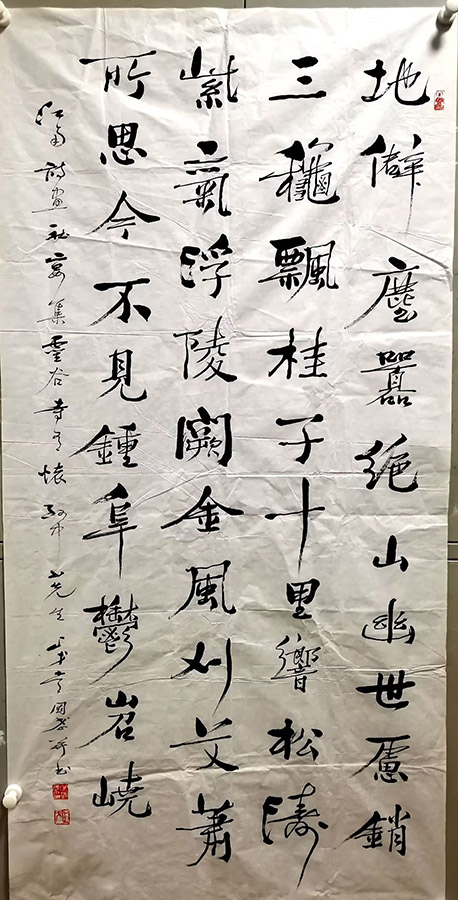 地僻塵囂絶山幽世慮銷
三龝飄桂子十里響松濤
紫氣浮陵闕金風刈艾蕭
所思今不見鍾阜鬱岧嶢
江南詩画社集靈谷寺有懷中山先生書